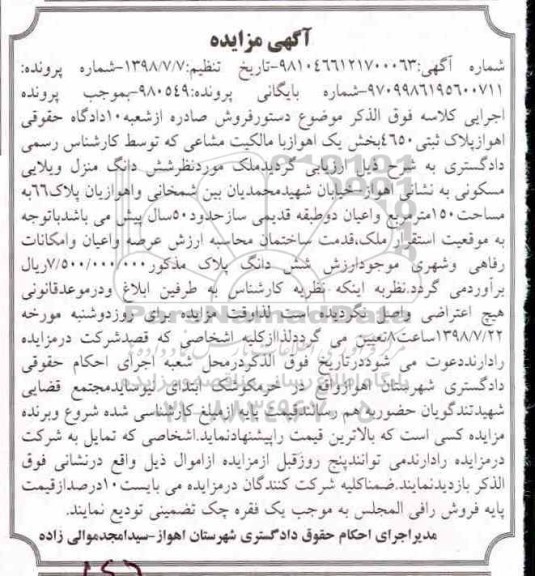 آگهی مزایده
شماره آگهی:۹۸۱۰۴۶۶۱۲۱۷۰۰۰۶۳-تاریخ تنظیم:۱۳۹۸/۷/۷-شماره پرونده:
۹۷۰۹۹۸۶۱۹۵۶۰۰۷۱۱-شماره بایگانی پرونده:۹۸۰۵۴۹-بموجب پرونده
اجرایی کلاسه فوق الذکر موضوع دستورفروش صادره ازشعبه۱۰دادگاه حقوقی
اهوازپلاک ثبتی۴۶۵۰بخش یک اهوازبا مالکیت مشاعی که توسط کارشناس رسمی
دادگستری به شرح ذیل ارزیابی گردیدملک موردنظرشش دانگ منزل ویلایی
مسکونی به نشانی اهواز-خیابان شهیدمحمدیان بین شمخانی واهوازیان پلاک۶۶به
مساحت۱۵۰مترمربع واعیان دوطبقه قدیمی سازحدود۵۰سال پیش می باشدباتوجه
به موقعیت استقرار ملک،قدمت ساختمان محاسبه ارزش عرصه واعیان وامکانات
رفاهی وشهری موجودارزش شش دانگ پلاک مذکور۷/۵۰۰/۰۰۰/۰۰۰ریال
برآوردمی گردد.نظربه اینکه نظریه کارشناس به طرفین ابلاغ ودرموعدقانونی
هیچ اعتراضی واصل نگردیده است لذاوقت مزایده برای روزدوشنبه مورخه
۱۳۹۸/۷/۲۲ساعت۸تعیین می گرددلذاازکلیه اشخاصی که قصدشرکت درمزایده
رادارنددعوت می شوددرتاریخ فوق الذکردرمحل شعبه اجرای احکام حقوقی
دادگستری شهرستان اهوازواقع در خرمکوشک ابتدای لیوسایدمجتمع قضایی
شهیدتندگویان حضوربه هم رسانندقیمت پایه ازمبلغ کارشناسی شده شروع وبرنده
مزایده کسی است که بالاترین قیمت راپیشنهادنماید.اشخاصی که تمایل به شرکت
درمزایده رادارندمی توانندپنج روزقبل ازمزایده ازاموال ذیل واقع درنشانی فوق
الذکر بازدیدنمایند.ضمناکلیه شرکت کنندگان درمزایده می بایست۱۰درصدازقیمت
پایه فروش رافی المجلس به موجب یک فقره چک تضمینی تودیع نمایند.
مدیراجرای احکام حقوق دادگستری شهرستان اهواز-سیدامجدموالی زاده